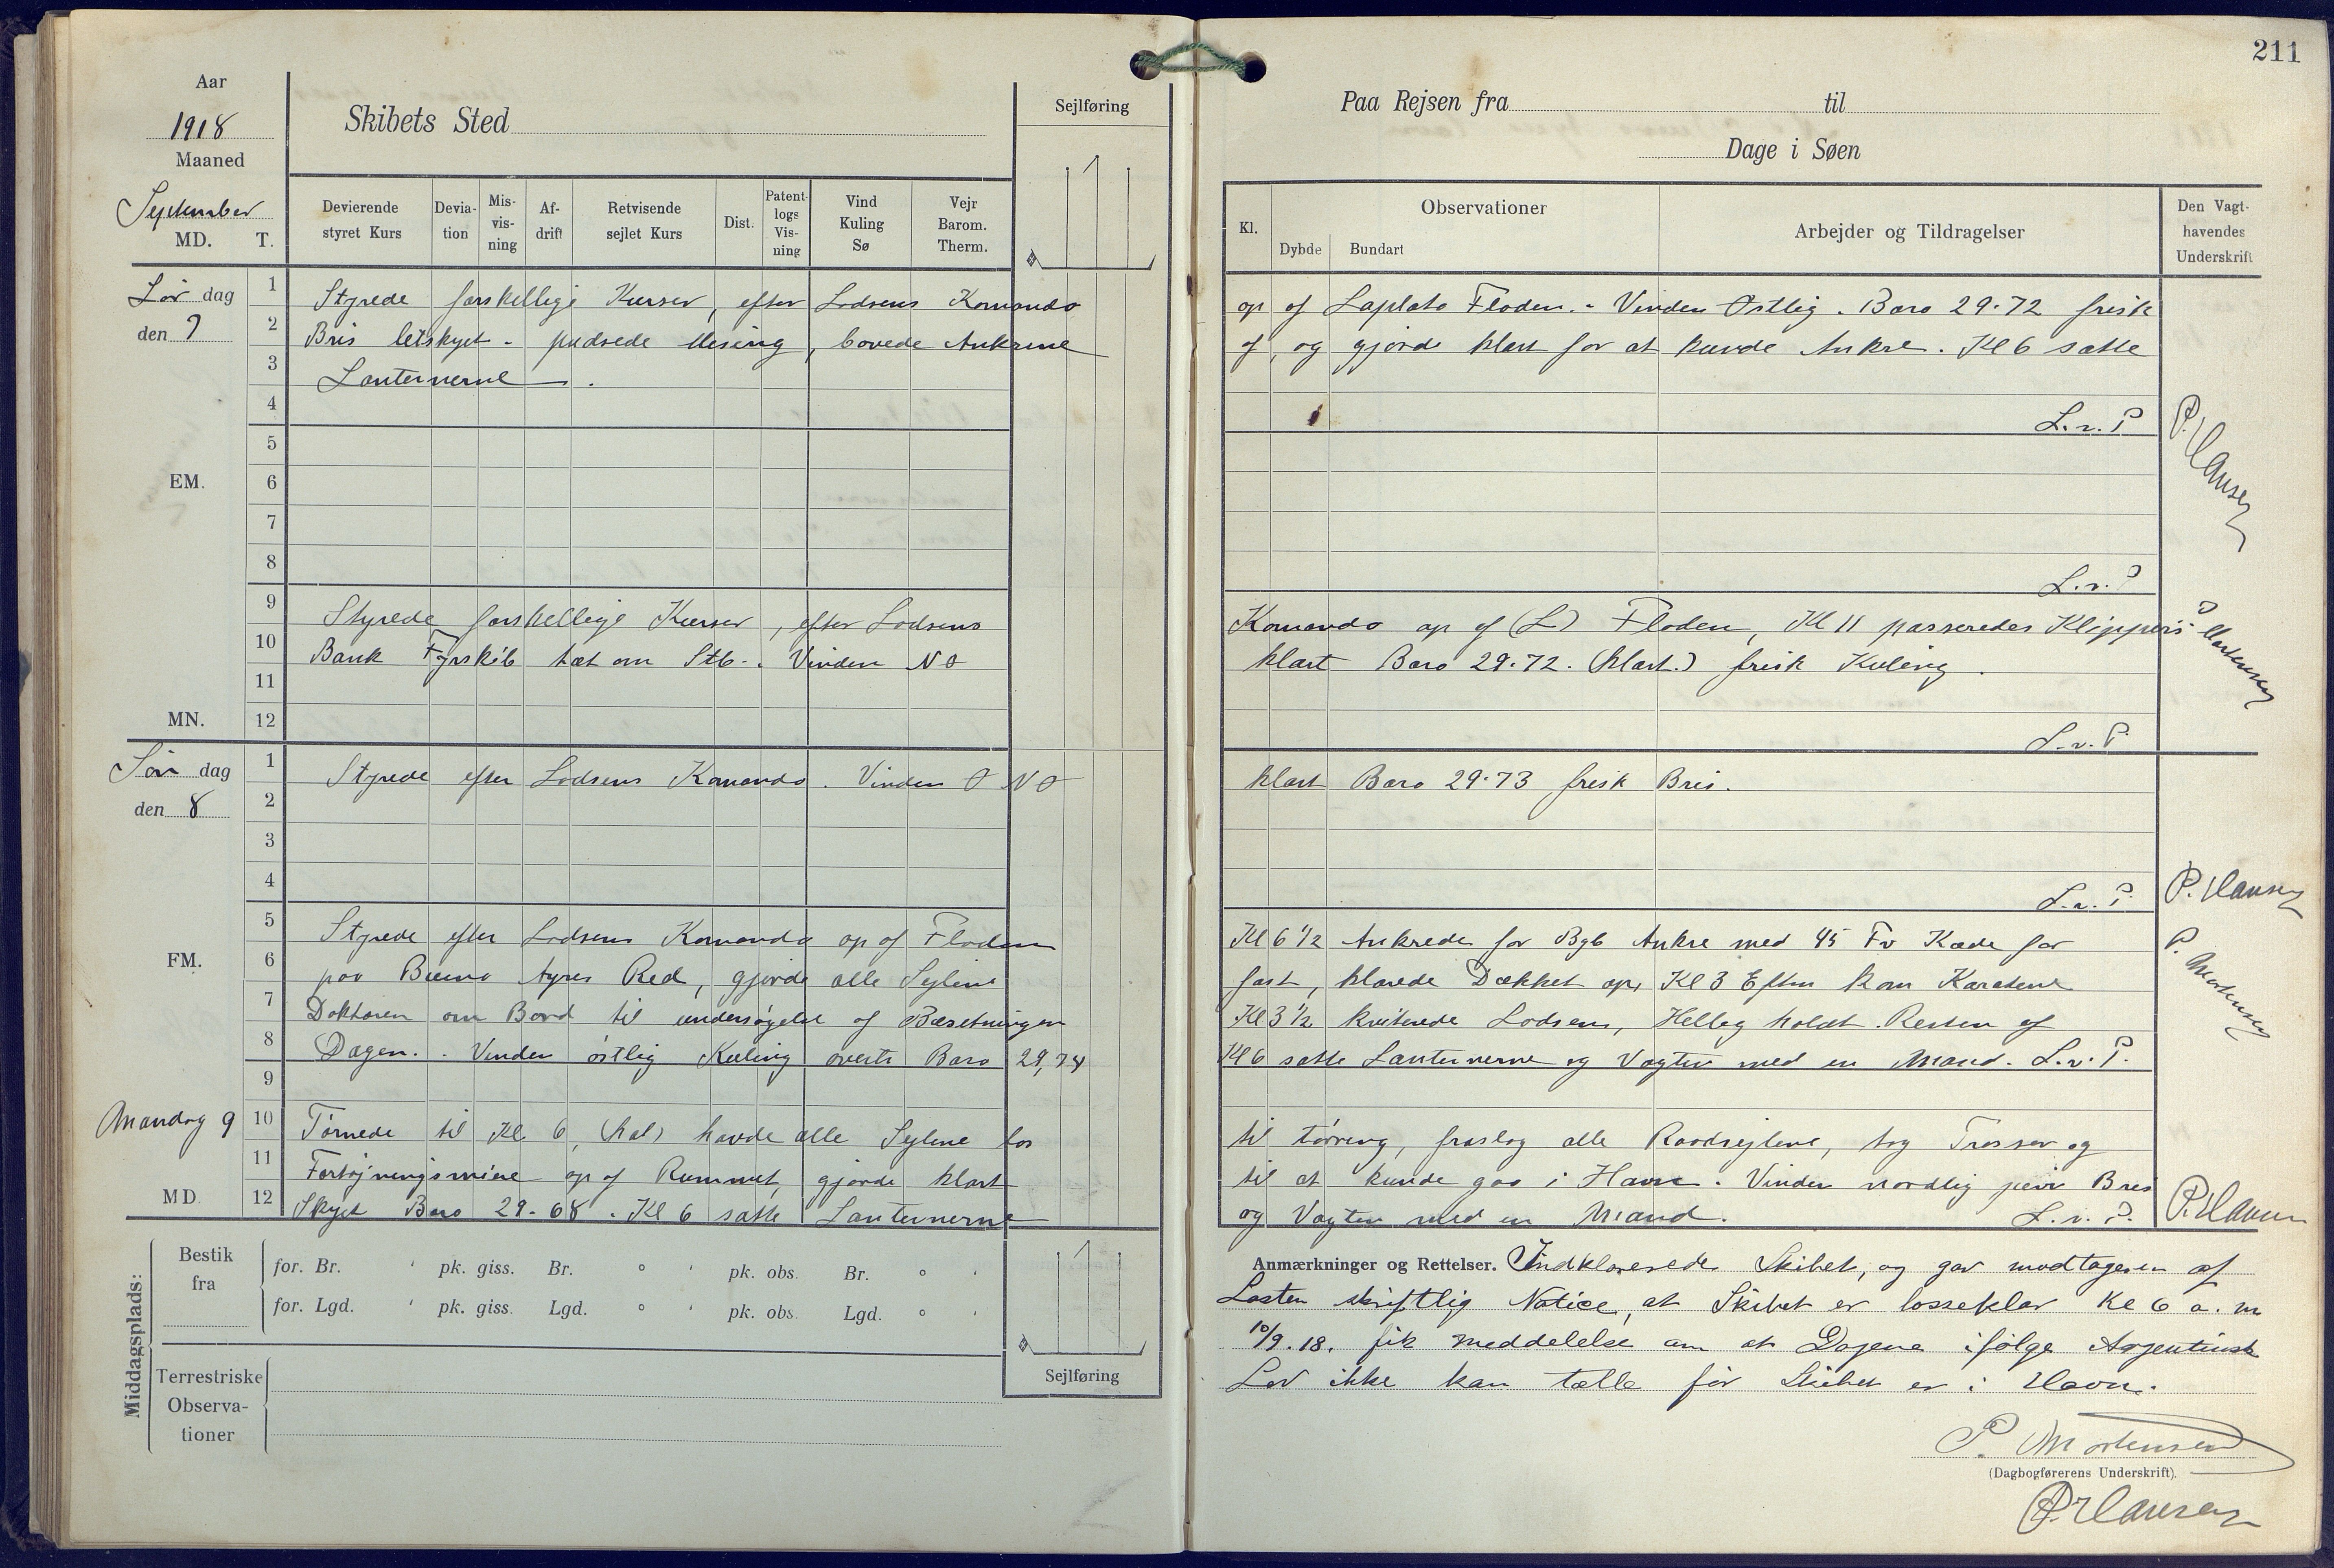 211
Aar
1918
Maaned
September
MD. T.
Skibets Sted
Sejlføring
Paa Rejsen fra til
Dage i Søen
Devierende styret Kurs
Deviation
Misvisning
Afdrift
Retvisende sejlet Kurs
Dist.
Patentlogs Visning
Vind Kuling Sø
Vejr Barom. Therm.
Kl.
Observationer
Dybde Bundart
Arbejder og Tildragelser
Den Vagthavendes Underskrift
Lør dag
den 7
EM.
MN.
1
2
3
4
5
6
7
8
9
10
11
12
Styrede forskellige Kurser, efter Lodsens Komando op af Laplata Floden. - Vinden Østlig. Baro 29.72 frisk
Bris letskyet - pudsede Mesing, bovede Ankrene af, og gjorde klart for at kunde Ankre. Kl 6 satte
Lanternerne.
L.v.P
P. Hansen
L.v.P
Styrede forskellige Kurser, efter Lodsens Komando op af (L) Floden, Kl 11 passeredes Klippers
Bank Fyrskib tæt om Stb. Vinden NO klart Baro 29.72. (klart.) frisk Kuling.
L.v.P
P Mortensen
Søn dag
den 8
FM.
MD.
1
2
3
4
5
6
7
8
9
10
11
12
Styrede efter Lodsens Komando. Vinden O NO klart Baro 29.73 frisk Bris.
L.v.P.
P. Hansen
Styrede efter Lodsens Komando op af Floden Kl 6 1/2 Ankrede for Bgb Ankre med 45 Fv Kæde for
paa Bueno Ayres Red, gjorde alle Sejlene fast, klarede Dækket op, Kl 3 Eftm kom Karatene
Doktoren om Bord til undersøgelse af Bæsetningen Kl 3 1/2 kviterede Lodsen, Hellig holdt Resten af
Dagen. Vinden østlig Kuling Baro 29,74 Kl 6 satte Lanternerne og Vagten med en Mand. L.v.P.
P. Mortensen
Mandag 9
Tørnede til Kl 6, (hal) havde alle Sejlene los til tørring, fraslog alle Raasejlene, tog Trosser og
Fortøjningsmine op af Rummet, gjorde klart til at kunde gaa i Havn. Vinden nordlig jevn Bris
Skyet Baro 29.68. Kl 6 satte Lanternerne og Vagten med en Mand. L.v.P.
P. Hansen
Middagsplads:
Bestik fra
for. Br. ' pk. giss. Br. ° ' pk. obs. Br. ° '
for. Lgd. ' pk. giss. Lgd. ° ' pk. obs. Lgd. ° '
Terrestriske Observationer
Sejlføring
Anmærkninger og Rettelser. Indklarerede Skibet, og gav modtageren af
Lasten skriftlig Notice, at Skibet er losseklar Kl 6 a.m
10/9.18. fik meddelelse om at Dagene ifølge Argentinsk
Lov ikke kan tælle før Skibet er i Havn.
P. Mortensen
(Dagbogførerens Underskrift).
P. Hansen